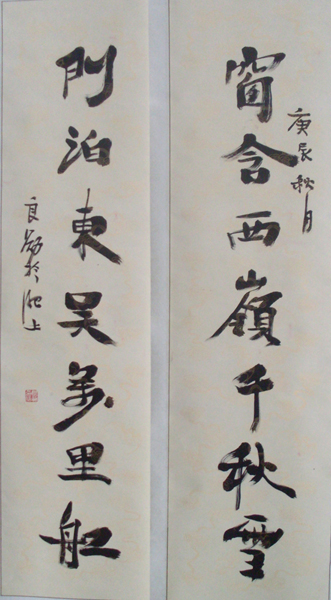 窗含西嶺千秋雪
庚辰秋月
門泊東吳萬里船
於湖上